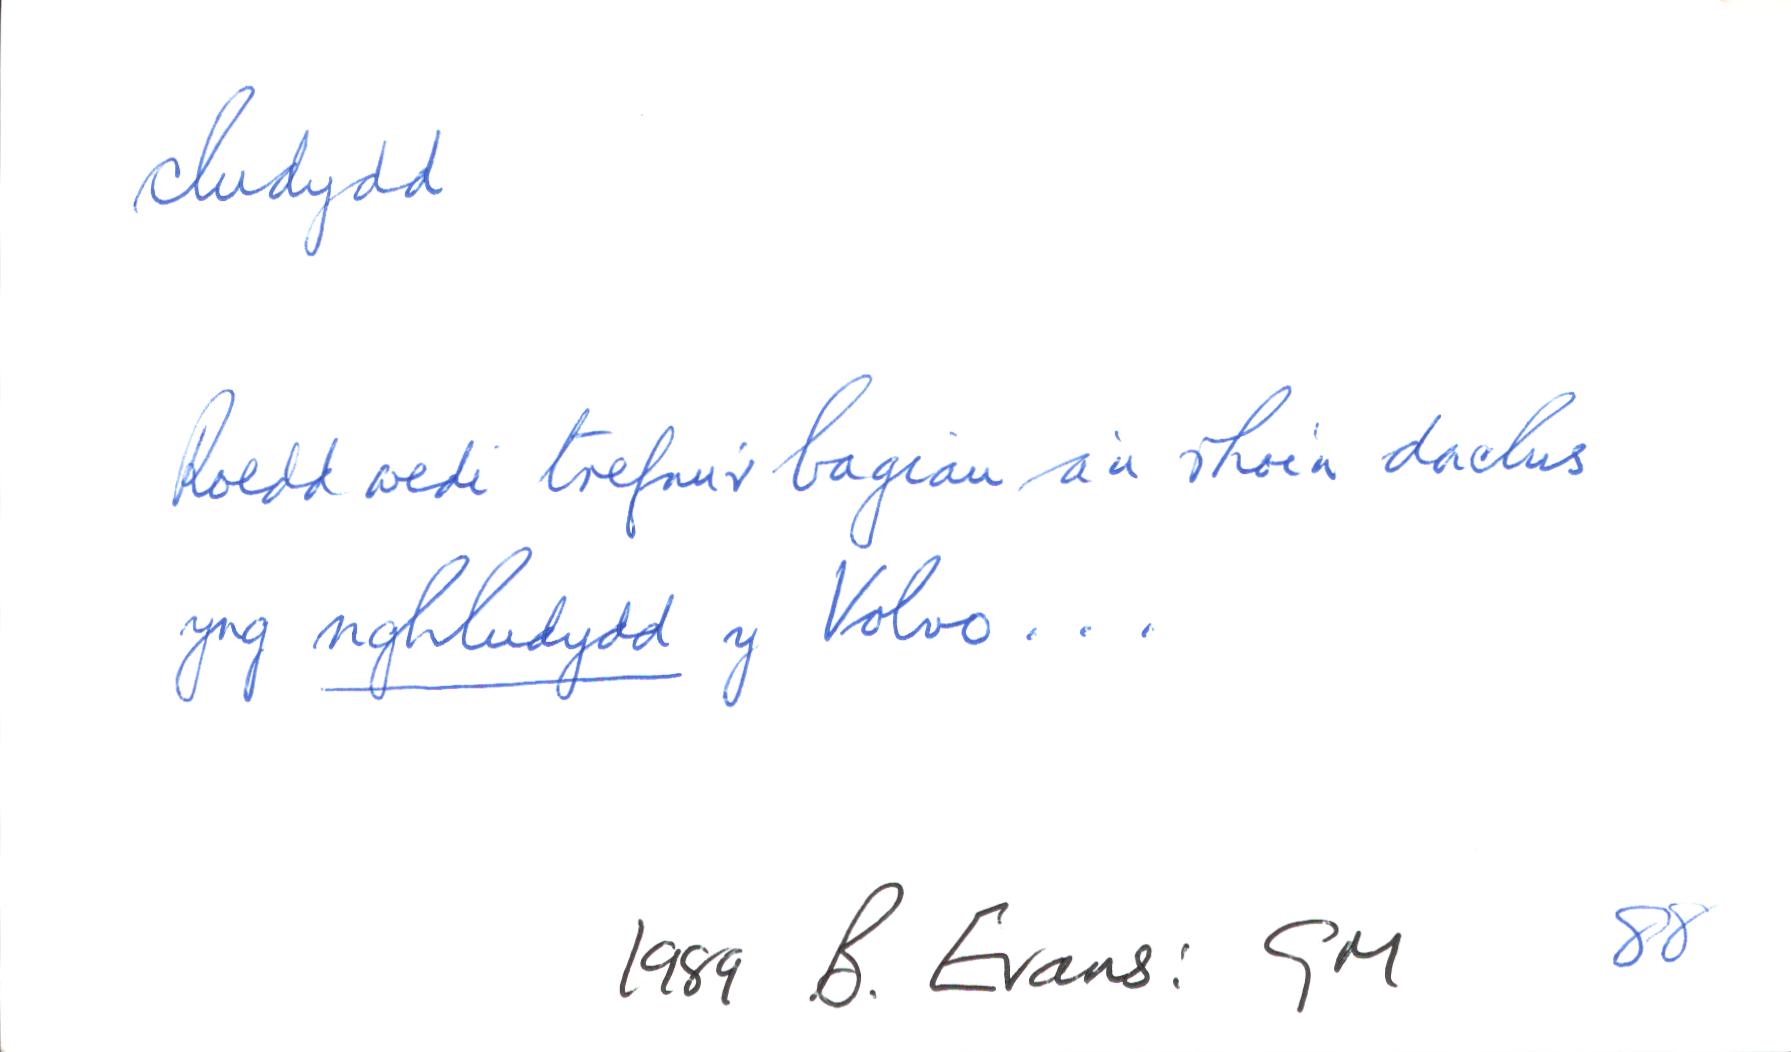 cludydd
Roedd wedi trefnu'r bagiau a'u rhoi'n daclus
yng nghludydd y Volvo . . .
1989 B. Evans: GM 88